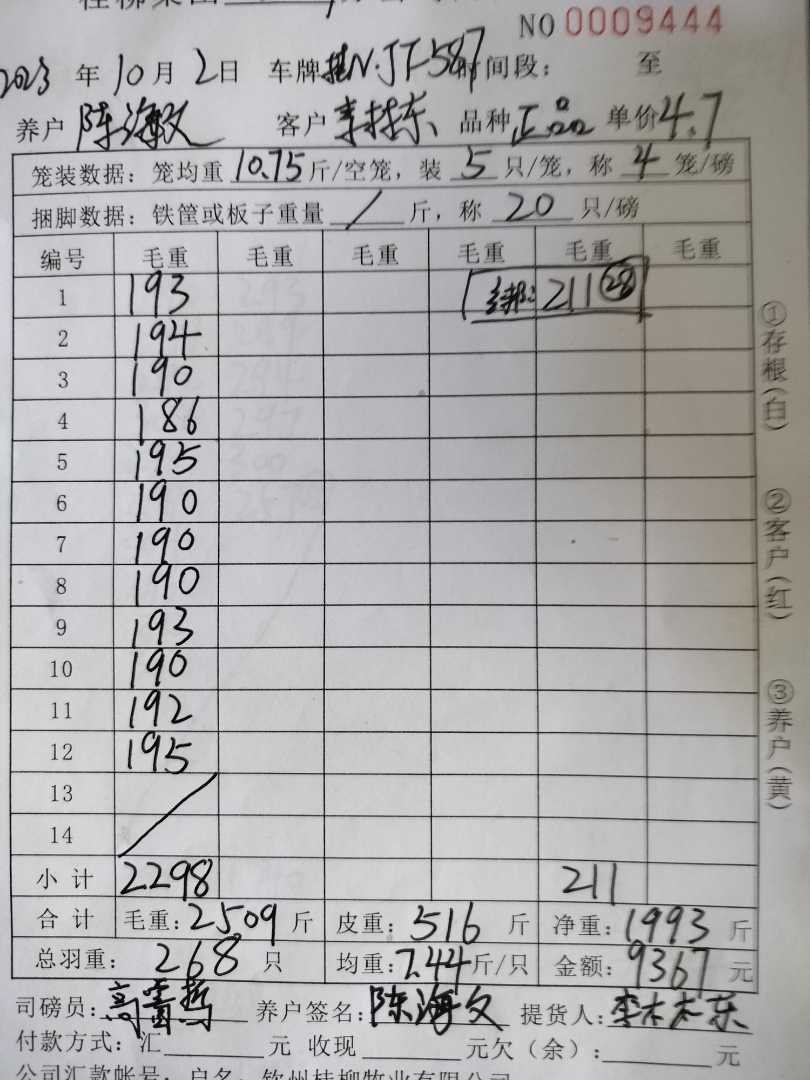 NO 0009444
2023 年 10 月 2 日 车牌 桂N·JT587 时间段: 至
养户 陈海文 客户 李林东 品种 正品 单价 4.7
笼装数据: 笼均重 10.75 斤/空笼, 装 5 只/笼, 称 4 笼/磅
捆脚数据: 铁筐或板子重量 / 斤, 称 20 只/磅
编号 毛重 毛重 毛重 毛重 毛重 毛重
1 193 211 28
2 194
3 190
4 186
5 195
6 190
7 190
8 190
9 193
10 190
11 192
12 195
13
14
小计 2298 211
合计 毛重: 2509 斤 皮重: 516 斤 净重: 1993 斤
总羽重: 268 只 均重: 7.44 斤/只 金额: 9367 元
司磅员: 养户签名: 陈海文 提货人:
付款方式: 汇 元 收现 元欠(余): 元
公司汇款帐号: 户名: 钦州桂柳牧业有限公司
①存根(白)
②客户(红)
③养户(黄)